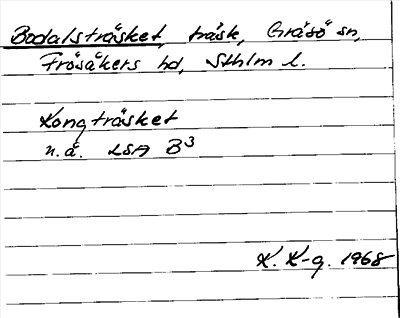 Bodalsträsket, träsk, Gräsö sn,
Frösåkers hd, Sthlm l.
Långträsket
n.å. LSA B3
K. K-g. 1968